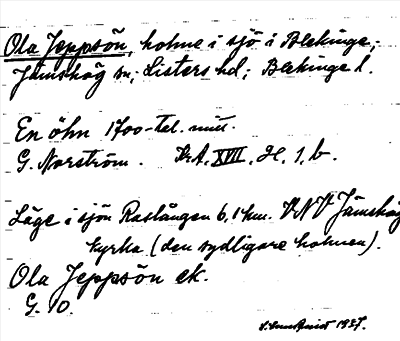 Ola Jeppsön, holme i sjö i Blekinge;
Jämshög sn; Listers hd; Blekinge l.
En öhn 1700-tel. mitt.
G. Norström. KrA. XVIII. H. 1, b.
Läge i sjön Raslången 6,1 km. VNV Jämshög
kyrka (den sydligare holmen).
Ola Jeppsön ek.
G. 10.
1937.